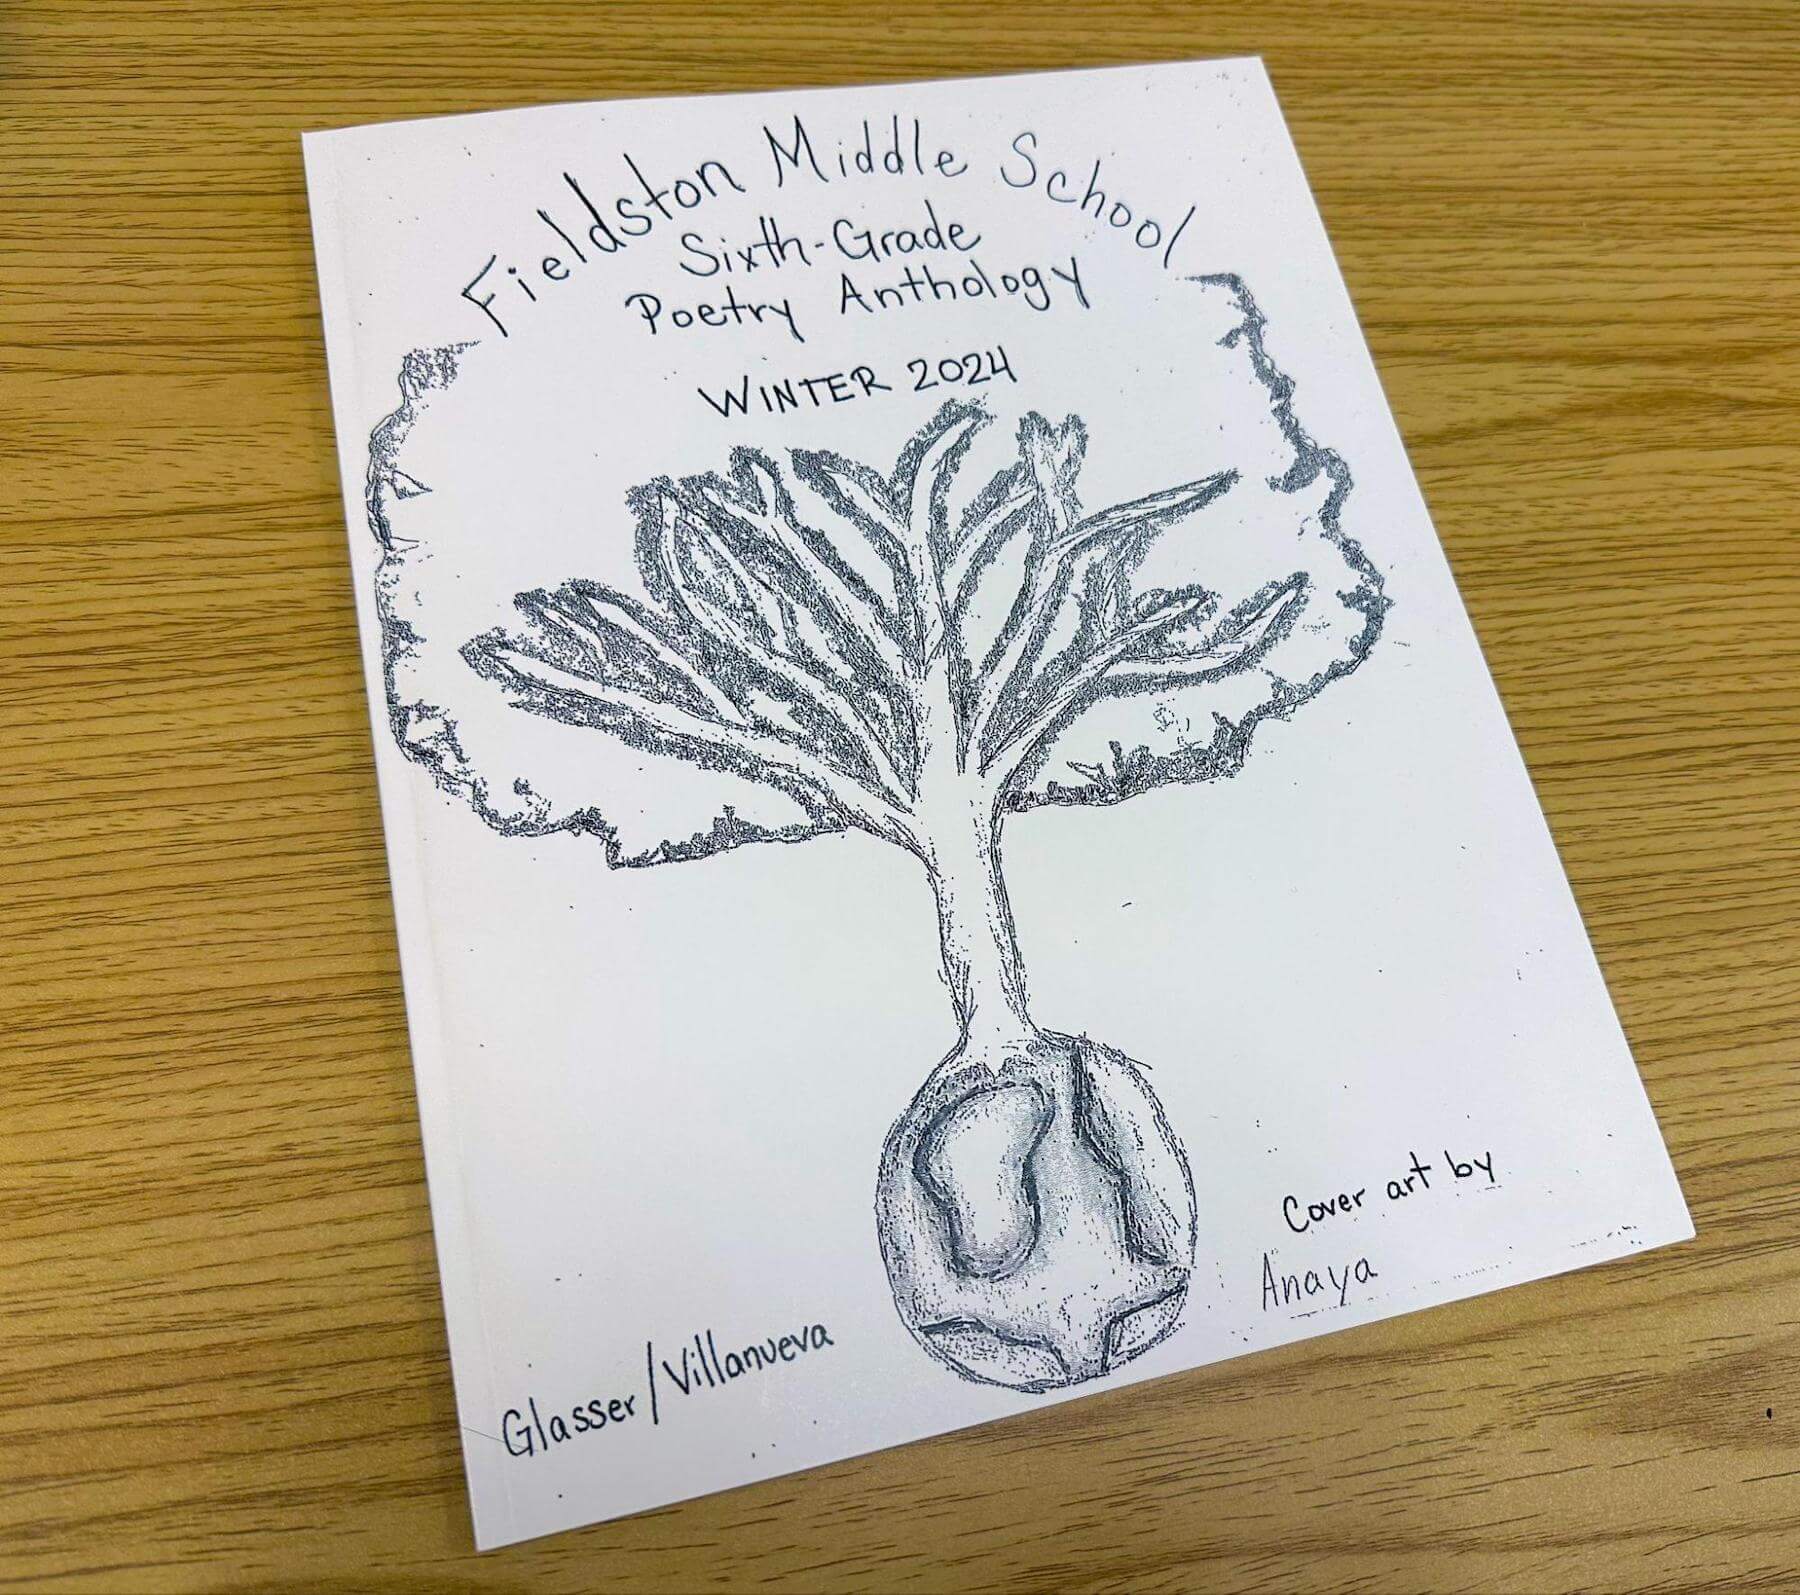 Fieldston Middle School
Sixth-Grade
Poetry Anthology
WINTER 2024
Cover art by
Anaya
Glasser/Villanueva